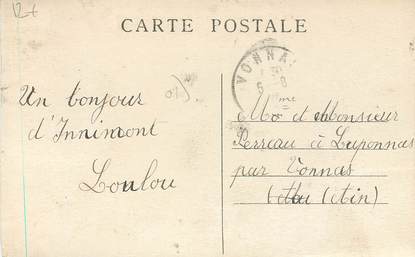 12+
CARTE POSTALE
VONNAS
Un bonjour
d'Innimont
Loulou
Mme et Monsieur
Perreau à Luponnas
par Vonnas
(Ain)